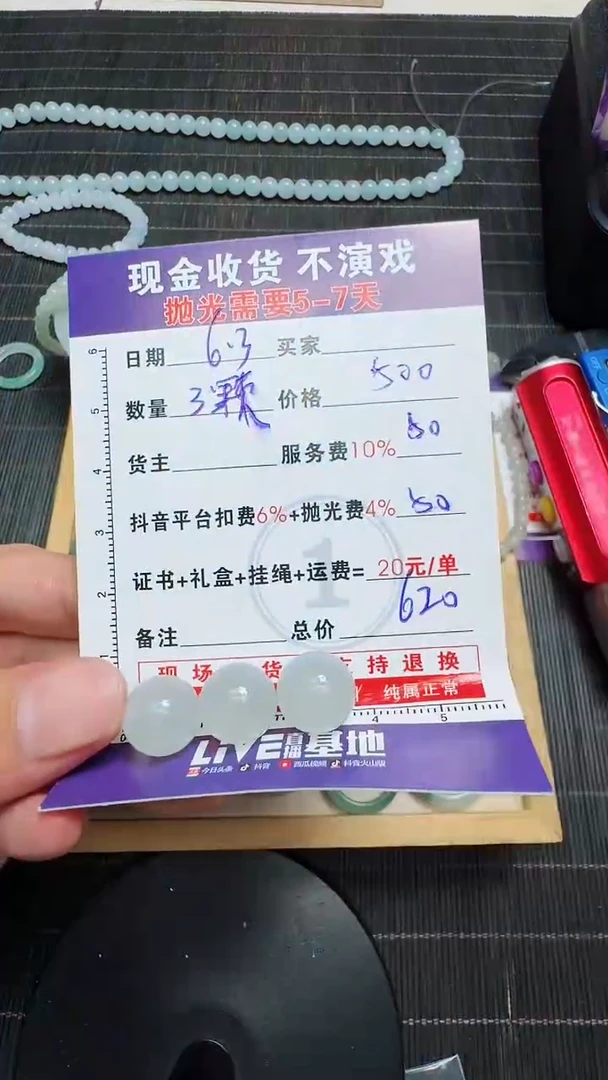 现金收货 不演戏
抛光需要5-7天
日期 6.3 买家
数量 3颗 价格 500
货主 服务费10% 50
抖音平台扣费6%+抛光费4% 50
证书+礼盒+挂绳+运费= 20元/单
620
备注 总价
现场 货 持退换
纯属正常
LIVE直播基地
今日头条 抖音 西瓜视频 抖音火山版